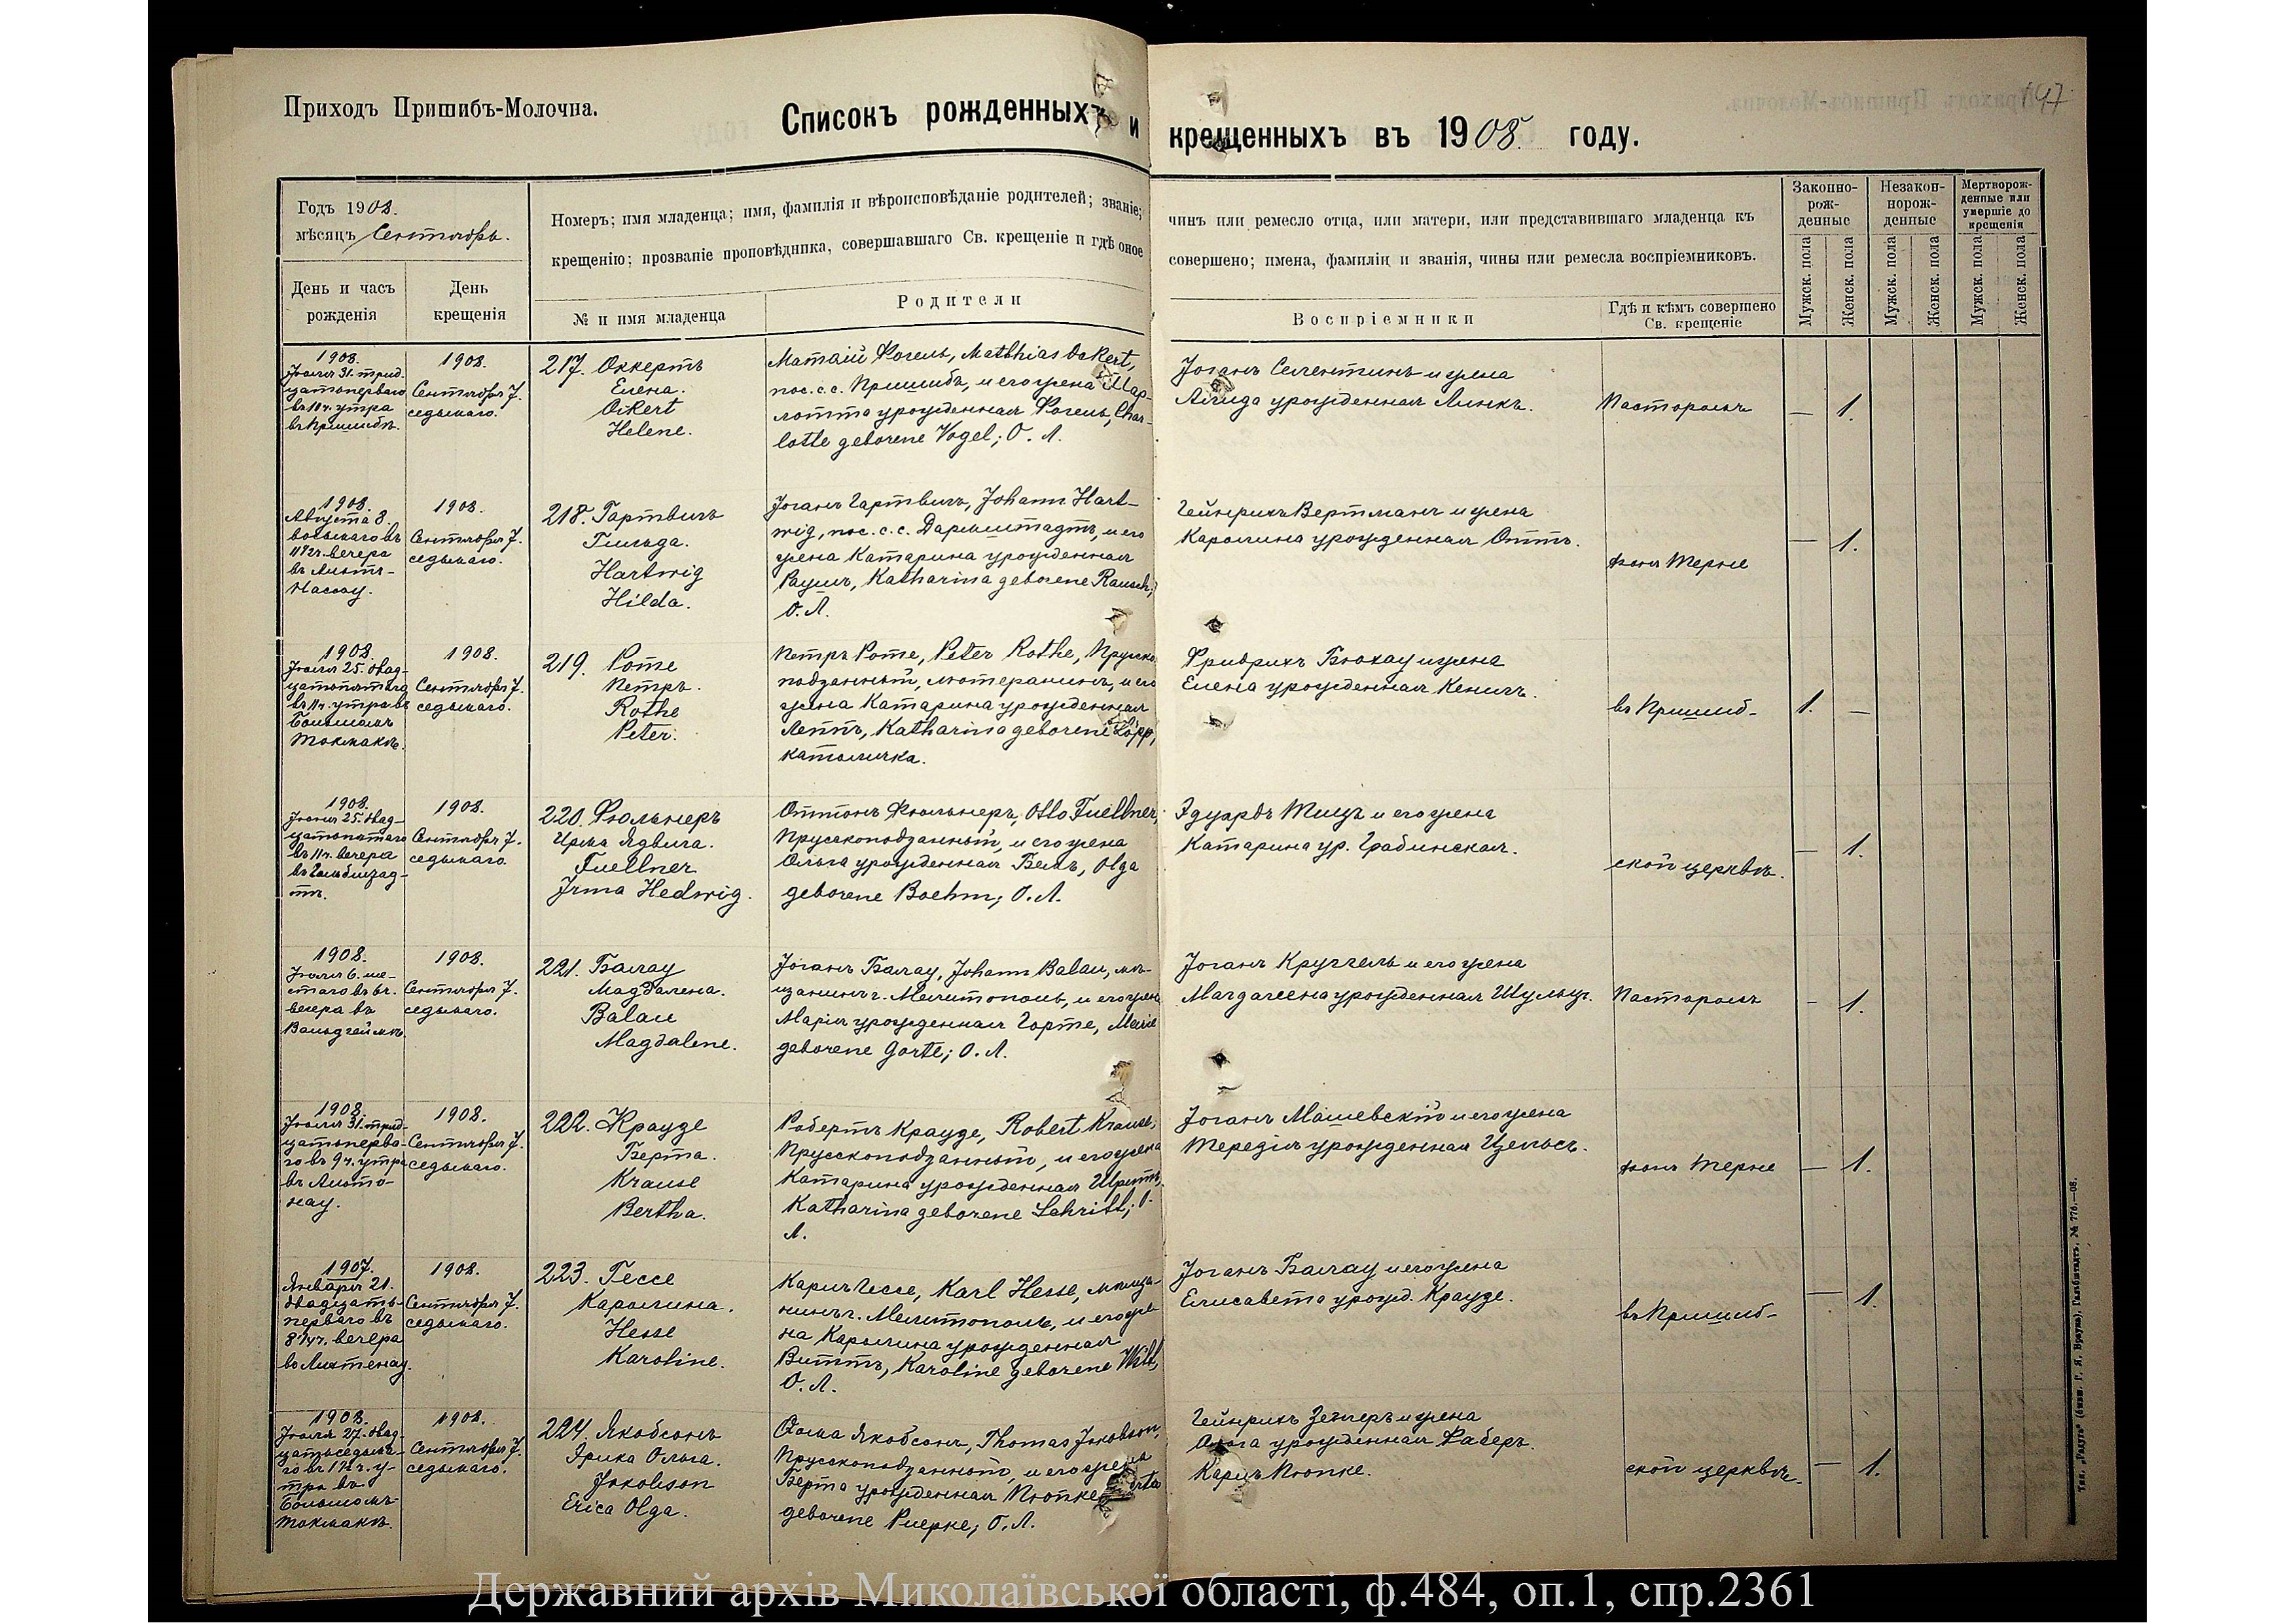 Приходъ Пришибъ-Молочна.
Списокъ рожденныхъ и крещенныхъ въ 1908 году.
147
Годъ 1908.
мѣсяцъ Сентябрь.
Номеръ; имя младенца; имя, фамилія и вѣроисповѣданіе родителей; званіе; чинъ или ремесло отца, или матери, или представившаго младенца къ
крещенію; прозваніе проповѣдника, совершавшаго Св. крещеніе и гдѣ оное совершено; имена, фамиліи и званія, чины или ремесла воспріемниковъ.
Законно-
рож-
денные
Незакон-
норож-
денные
Мертворож-
денные или
умершіе до
крещенія
День и часъ
рожденія
День
крещенія
№ и имя младенца
Родители
Воспріемники
Гдѣ и кѣмъ совершено
Св. крещеніе
Мужск. пола
Женск. пола
Мужск. пола
Женск. пола
Мужск. пола
Женск. пола
1908.
Іюля 31. трид-
цатоперваго
въ 10 ч. утра
въ Пришибѣ.
1908.
Сентября 7.
седьмаго.
217. Оккертъ
Елена.
Ockert
Helene.
Матвій Фогель, Matthias Ockert,
пос. с. с. Пришибъ, и его жена Шар-
лотта урожденная Фогель, Char-
lotte geborene Vogel; О. Л.
Іоганъ Селентинъ и жена
урожденная Линкъ.
Пасторомъ
— 1.
1908.
Августа 8.
восьмаго въ
11½ ч. вечера
въ Альтъ-
Нассау.
1908.
Сентября 7.
седьмаго.
218. Гартвигъ
Гильда.
Hartwig
Hilda.
Іоганъ Гартвигъ, Johann Hart-
wig, пос. с. с. Дармштадтъ, и его
жена Катарина урожденная
Раушъ, Katharina geborene Rausch;
О. Л.
Гейнрихъ Вертманъ и жена
Каролина урожденная Оттъ.
фонъ Терне
— 1.
1908.
Іюля 25. двад-
цатопятаго
въ 11 ч. утра въ
Большомъ
Токмакѣ.
1908.
Сентября 7.
седьмаго.
219. Роте
Петръ.
Rothe
Peter.
Петръ Роте, Peter Rothe, Прусско-
подданный, лютеранинъ, и его
жена Катарина урожденная
Леппъ, Katharina geborene Löpp,
католичка.
Фридрихъ Бюхау и жена
Елена урожденная Кенигъ.
въ Пришиб-
1. —
1908.
25. двад-
цатопятаго
въ 11 ч. вечера
въ Гальбштад-
тѣ.
1908.
Сентября 7.
седьмаго.
220. Фюльнеръ
Ирма Ядвига.
Fuellner
Irma Hedwig.
Оттонъ Фюльнеръ, Otto Fuellner,
Прусскоподданный, и его жена
Ольга урожденная Бемъ, Olga
geborene Boehm; О. Л.
Эдуардъ Тицъ и его жена
Катарина ур. Грабинская.
ской церквѣ.
— 1.
1908.
Іюля 6. ше-
стаго въ 6 ч.
вечера въ
Вальдгеймѣ
1908.
Сентября 7.
седьмаго.
221. Балау
Магдалена.
Balau
Magdalene.
Іоганъ Балау, Johann Balau, мѣ-
щанинъ г. Мелитополь, и его жена
Марія урожденная Горте, Marie
geborene Gorte; О. Л.
Іоганъ Кругель и его жена
Магдалена урожденная Шульц.
Пасторомъ
— 1.
1908.
Іюля 31. трид-
цатоперва-
го въ 9 ч. утра
въ
1908.
Сентября 7.
седьмаго.
222. Краузе
Берта.
Krause
Bertha.
Робертъ Краузе, Robert Krause,
Прусскоподданный, и его жена
Катарина урожденная Шритъ,
Katharina geborene Schritt; О.
Л.
Іоганъ Машевскій и его жена
Терезія урожденная Цельсъ.
фонъ Терне
— 1.
1907.
Января 21.
двадцать-
перваго въ
8¼ ч. вечера
въ Лихтенау.
1908.
Сентября 7.
седьмаго.
223. Гессе
Каролина.
Hesse
Karoline.
Карлъ Гессе, Karl Hesse, мѣща-
нинъ г. Мелитополь, и его же-
на Каролина урожденная
Виттъ, Karoline geborene Witt,
О. Л.
Іоганъ Балау и его жена
Елисавета урожд. Краузе.
въ Пришиб-
— 1.
1908.
Іюля 27. двад-
цатьседьма-
го въ 1½ ч. у-
тра въ
Большомъ-
Токмакѣ.
1908.
Сентября 7.
седьмаго.
224. Якобсонъ
Эрика Ольга.
Jakobson
Erica Olga.
Ѳома Якобсонъ, Thomas Jakobson,
Прусскоподданный, и его жена
Берта урожденная Пюпке,
geborene О. Л.
Гейнрихъ Зеплеръ и жена
Ольга урожденная Фаберъ.
Карлъ Пюпке.
ской церквѣ.
— 1.
Тип. „Радуга“ (бывш. Г. Я. Брауна), Гальбштадтъ. № 776.—08.
Державний архів Миколаївської області, ф.484, оп.1, спр.2361